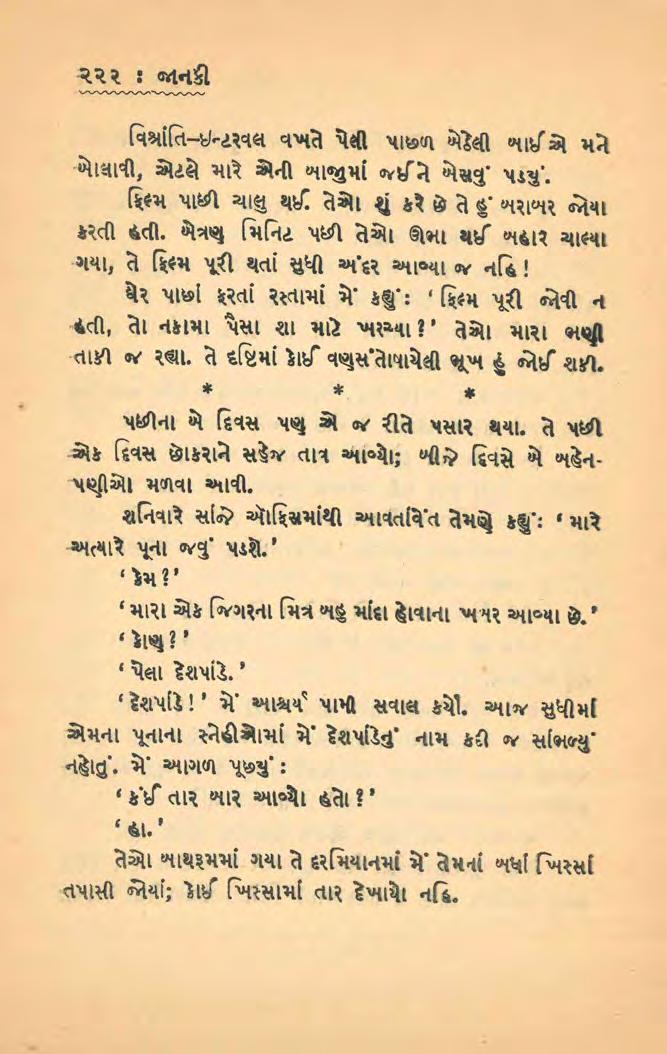 ૨૨૨ : જાનકી
વિશ્રાંતિ–ઇન્ટરવલ વખતે પેલી પાછળ બેઠેલી બાઈએ મને
બોલાવી, એટલે મારે એની બાજુમાં જઈને બેસવું પડયું.
ફિલ્મ પાછી ચાલુ થઈ. તેઓ શું કરે છે તે હું બરાબર જોયા
કરતી હતી. બેત્રણ મિનિટ પછી તેઓ ઊભા થઈ બહાર ચાલ્યા
ગયા, તે ફિલ્મ પૂરી થતાં સુધી અંદર આવ્યા જ નહિ!
ઘેર પાછાં ફરતાં રસ્તામાં મેં કહ્યું: ‘ ફિલ્મ પૂરી જોવી ન
હતી, તો નકામા પૈસા શા માટે ખરચ્યા?’ તેઓ મારા ભણી
તાકી જ રહ્યા. તે દૃષ્ટિમાં કોઈ વણસંતોષાયેલી ભૂખ હું જોઈ શકી.
* * *
પછીના બે દિવસ પણ એ જ રીતે પસાર થયા. તે પછી
એક દિવસ છોકરાને સહેજ તાવ આવ્યો; બીજે દિવસે બે બહેન-
પણીઓ મળવા આવી.
શનિવારે સાંજે ઑફિસમાંથી આવતાંવેંત તેમણે કહ્યું: ‘ મારે
અત્યારે પૂના જવું પડશે.’
‘ કેમ?’
‘ મારા એક જિગરના મિત્ર બહુ માંદા હોવાના ખબર આવ્યા છે.’
‘ કોણ?’
‘ પેલા દેશપાંડે.’
‘ દેશપાંડે!’ મેં આશ્ચર્ય પામી સવાલ કર્યો. આજ સુધીમાં
એમના પૂનાના સ્નેહીઓમાં મેં દેશપાંડેનું નામ કદી જ સાંભળ્યું
નહોતું. મેં આગળ પૂછયું :
‘ કંઈ તાર બાર આવ્યો હતો?’
‘ હા.’
તેઓ બાથરૂમમાં ગયા તે દરમિયાનમાં મેં તેમનાં બધાં ખિસ્સાં
તપાસી જોયાં; કોઈ ખિસ્સામાં તાર દેખાયો નહિ.